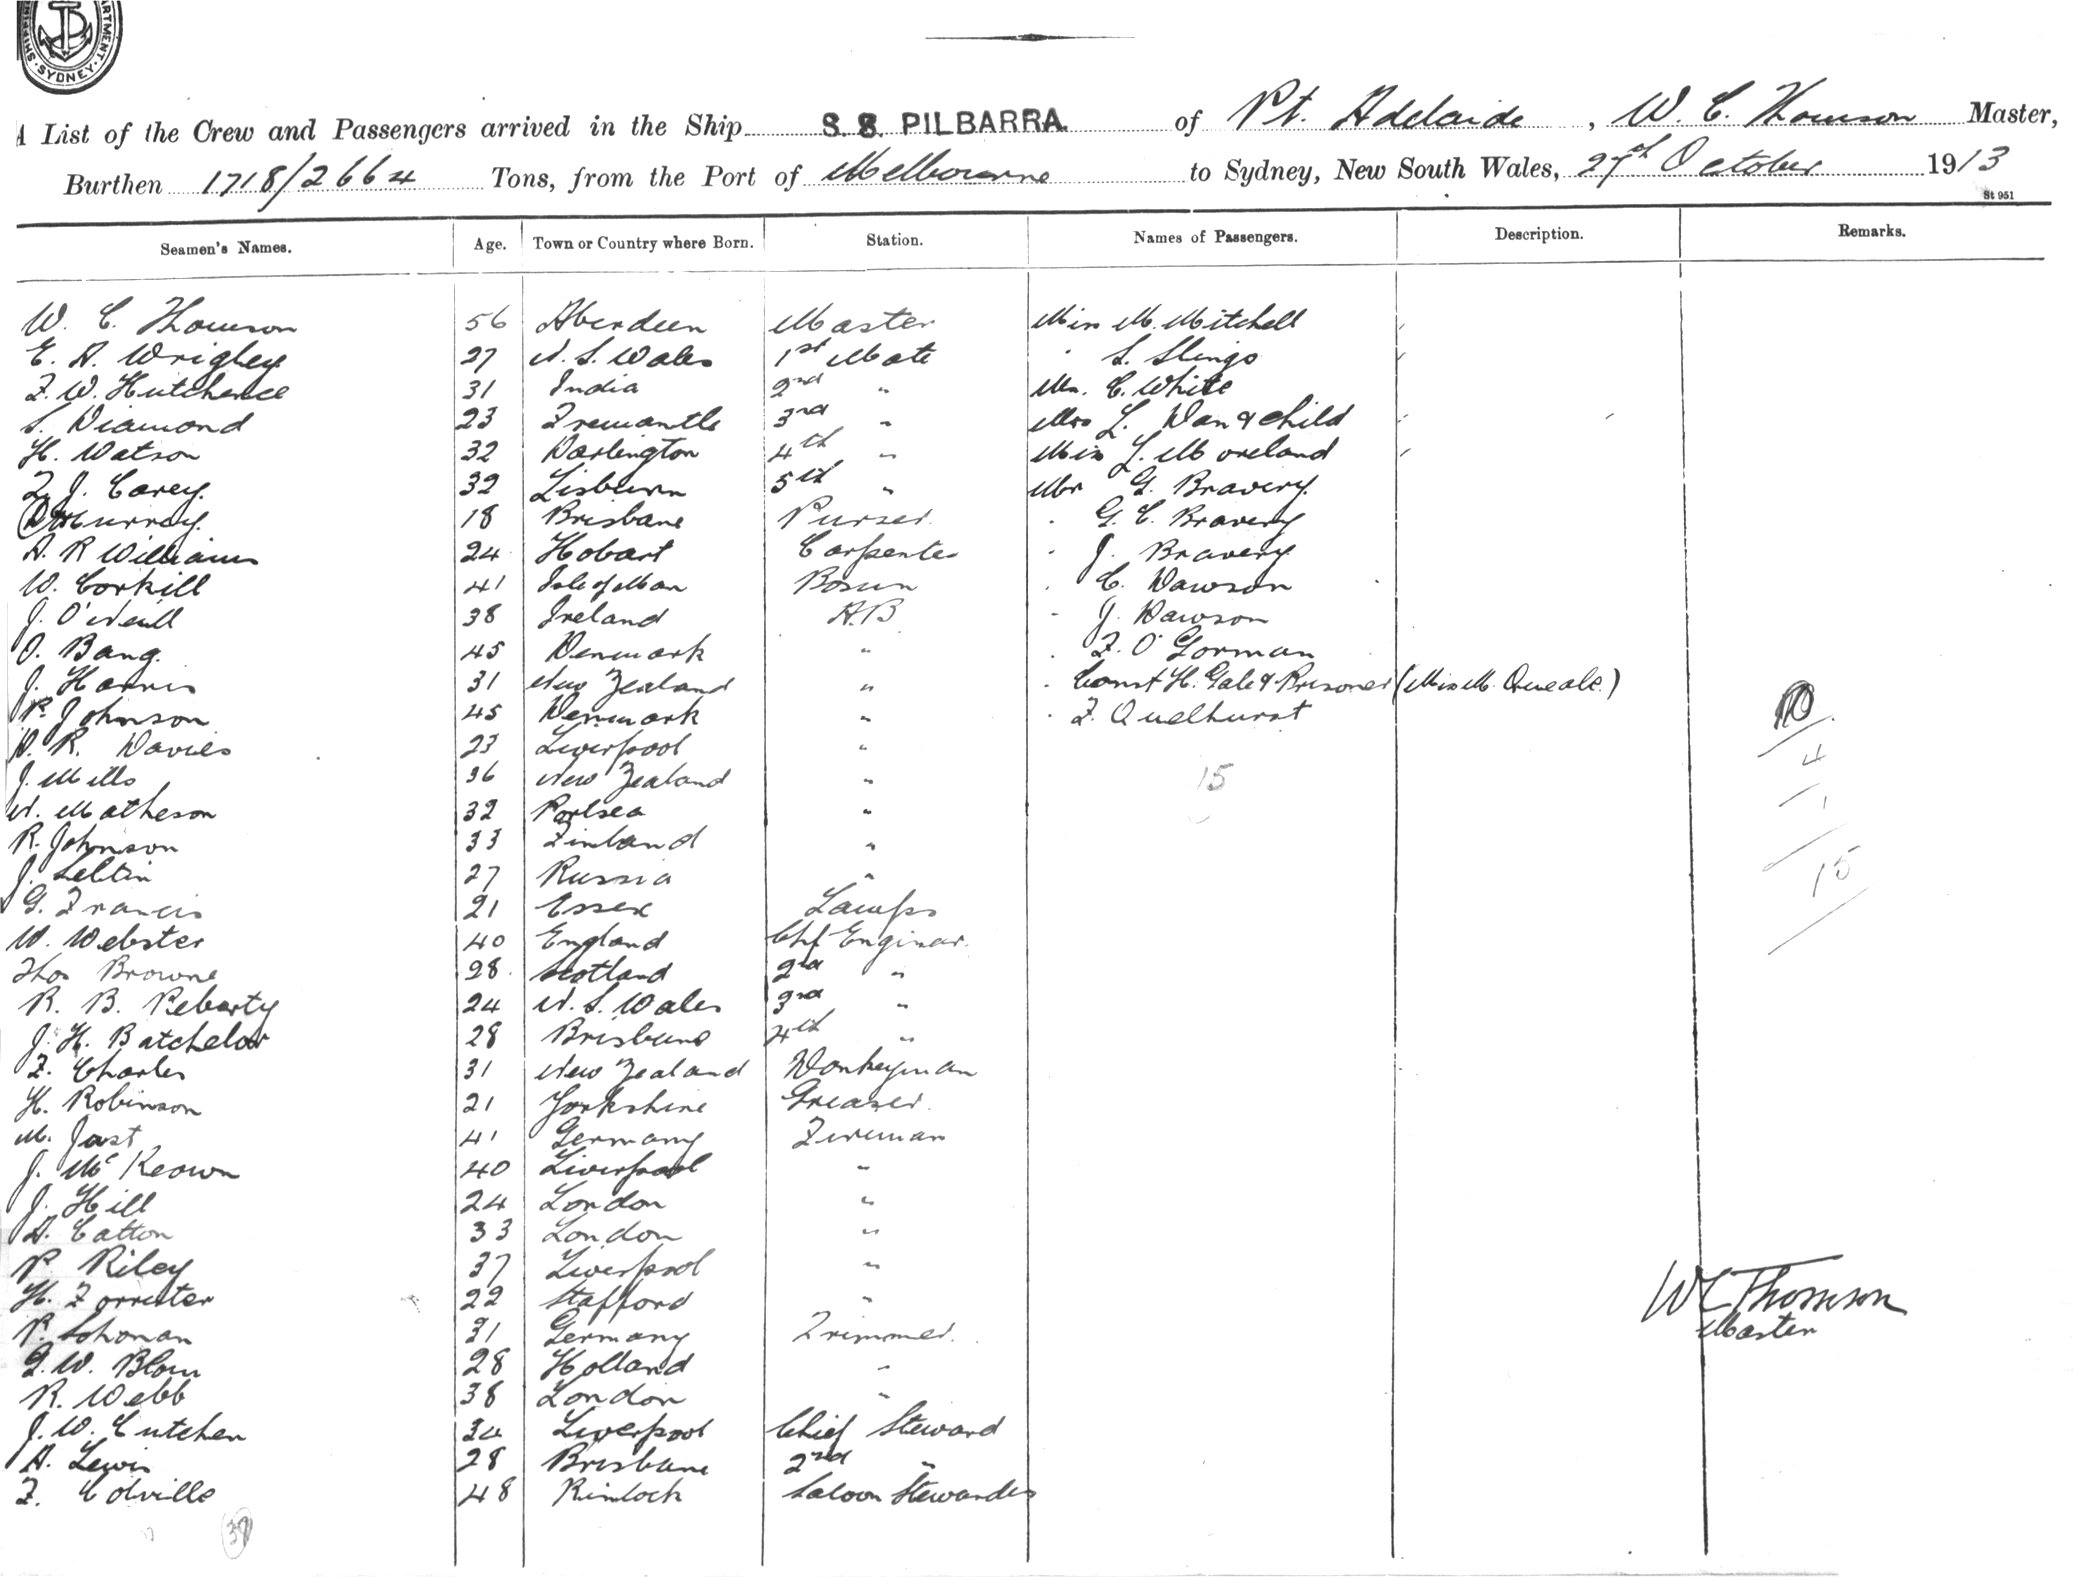 SYDNEY
A List of the Crew and Passengers arrived in the Ship S.S. PILBARRA of Pt. Adelaide, W. C. Thomson Master,
Burthen 1718/2664 Tons, from the Port of Melbourne to Sydney, New South Wales, 27th October 1913
St 951
Seamen's Names. Age. Town or Country where Born. Station. Names of Passengers. Description. Remarks.
W. C. Thomson 56 Aberdeen Master Miss M. Mitchell
E. A. Wrigley 27 N. S. Wales 1st Mate " S. Slings
F. W. Hutchence 31 India 2nd " Mr. C. White
S. Diamond 23 Fremantle 3rd " Mrs L. Dan & Child
H. Watson 32 Darlington 4th " Miss L. Moreland
F. J. Carey. 32 Lisburn 5th " Mr G. Bravery.
Murray. 18 Brisbane Purser. " G. C. Bravery
A. R Williams 24 Hobart Carpenter " J. Bravery
W. Corkill 41 Isle of Man Bosun " C. Dawson
J. O'Neill 38 Ireland A.B " J. Dawson
O. Bang. 45 Denmark " " F. O'Gorman
J. Harris 31 New Zealand " " Const H. Gale & Prisoner (Miss M. Queale.)
P. Johnson 45 Denmark " " F. Quelhurst
W. R. Davies 23 Liverpool "
J. Mills 36 New Zealand " 15
N. Matheson 32 Portsea "
R. Johnson 33 Finland "
J. 27 Russia "
G. Francis 21 Essex Lamps
W. Webster 40 England Chf Engineer.
Thos Browne 28. Scotland 2nd "
R. B. Rebarty 24 N. S. Wales 3rd "
J. H. Batchelor 28 Brisbane 4th "
F. Charles 31 New Zealand Donkeyman
H. Robinson 21 Yorkshire Greaser.
M. Jast 41 Germany Fireman
J. McKeown 40 Liverpool "
J. Hill 24 London "
A. Catton 33 London "
P Riley 37 Liverpool "
H. Forrester 22 Stafford "
P. Schonan 31 Germany Trimmer.
G. W. Blom 28 Holland "
R. Webb 38 London "
J. W. Cutcher 34 Liverpool Chief Steward
A. Lewis 28 Brisbane 2nd "
F. Colville 48 Kinlock Saloon Stewardess
10
4
1
15
WC Thomson
Master
37